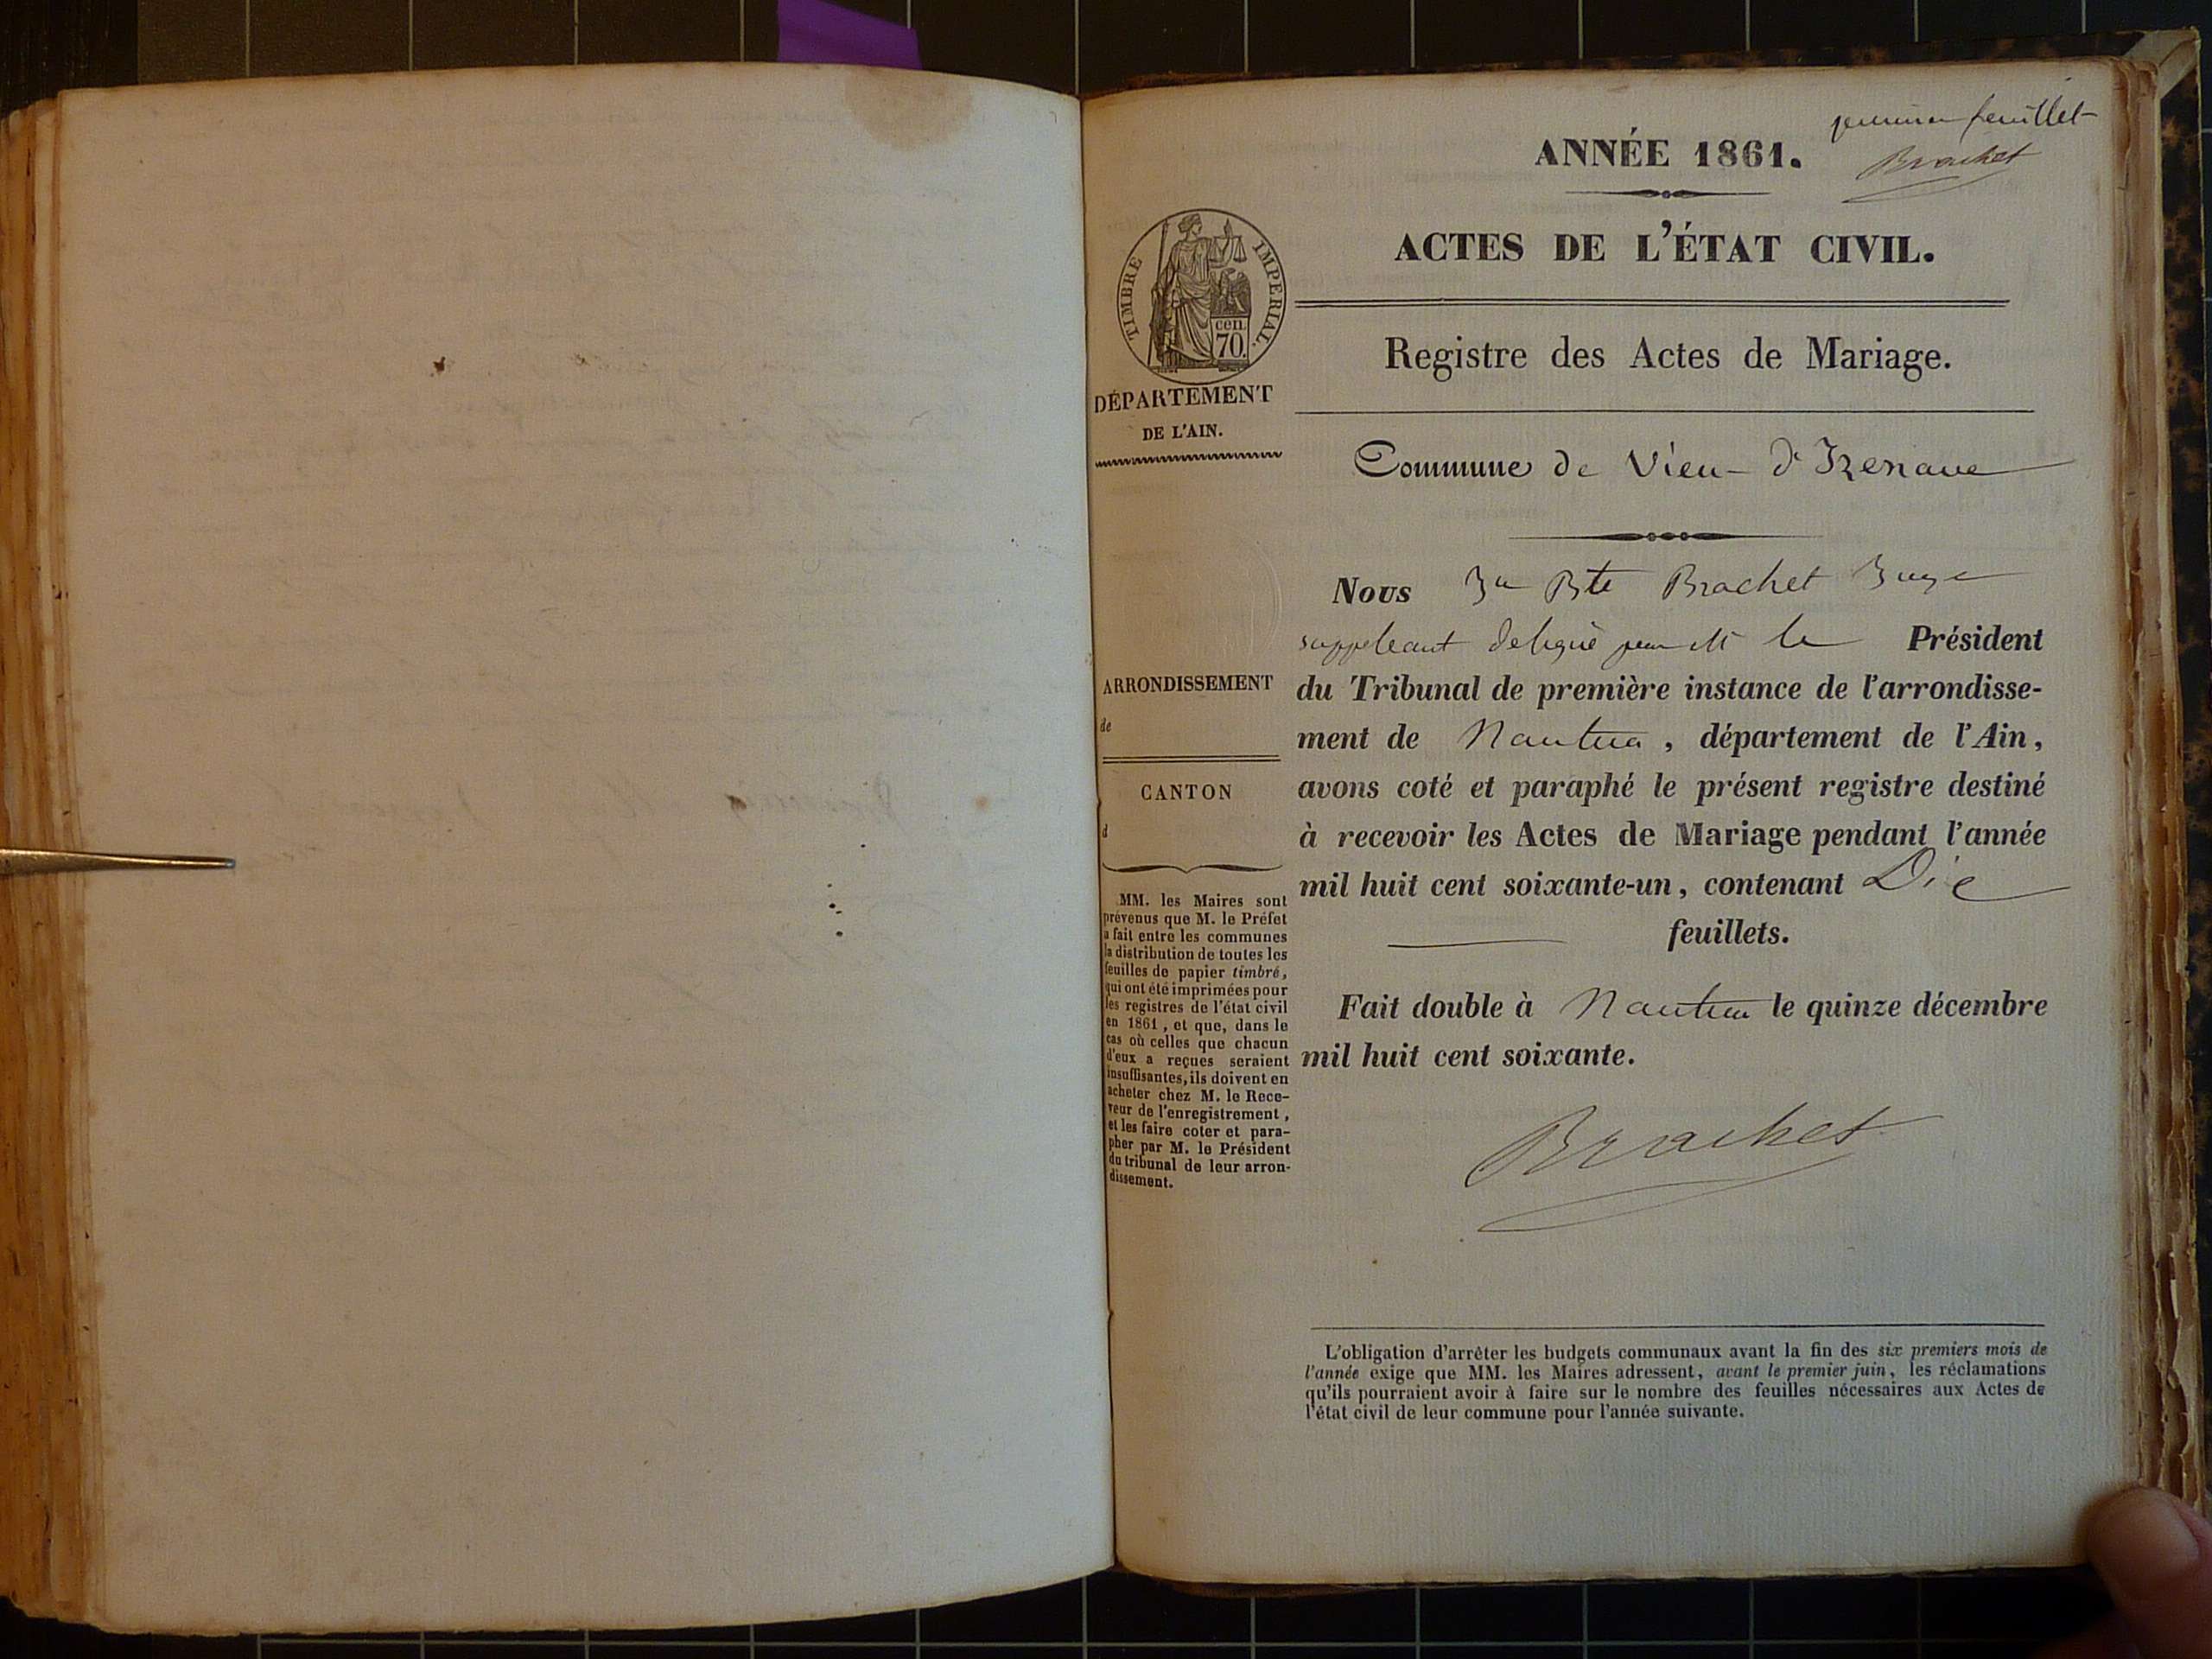 premier feuillet
Brachet
ANNÉE 1861.
ACTES DE L'ÉTAT CIVIL.
TIMBRE IMPERIAL.
cen.
70.
DÉPARTEMENT
DE L'AIN.
Registre des Actes de Mariage.
Commune de Vieu-d'Izenave
Nous Jn Bte Brachet Juge
suppléant délégué par M le Président
du Tribunal de première instance de l'arrondisse-
ment de Nantua, département de l'Ain,
avons coté et paraphé le présent registre destiné
à recevoir les Actes de Mariage pendant l'année
mil huit cent soixante-un, contenant Dix
feuillets.
Fait double à Nantua le quinze décembre
mil huit cent soixante.
Brachet
ARRONDISSEMENT
de
CANTON
d
MM. les Maires sont
prévenus que M. le Préfet
a fait entre les communes
la distribution de toutes les
feuilles de papier timbré,
qui ont été imprimées pour
les registres de l'état civil
en 1861, et que, dans le
cas où celles que chacun
d'eux a reçues seraient
insuffisantes, ils doivent en
acheter chez M. le Rece-
veur de l'enregistrement,
et les faire coter et para-
pher par M. le Président
du tribunal de leur arron-
dissement.
L'obligation d'arrêter les budgets communaux avant la fin des six premiers mois de
l'année exige que MM. les Maires adressent, avant le premier juin, les réclamations
qu'ils pourraient avoir à faire sur le nombre des feuilles nécessaires aux Actes de
l'état civil de leur commune pour l'année suivante.